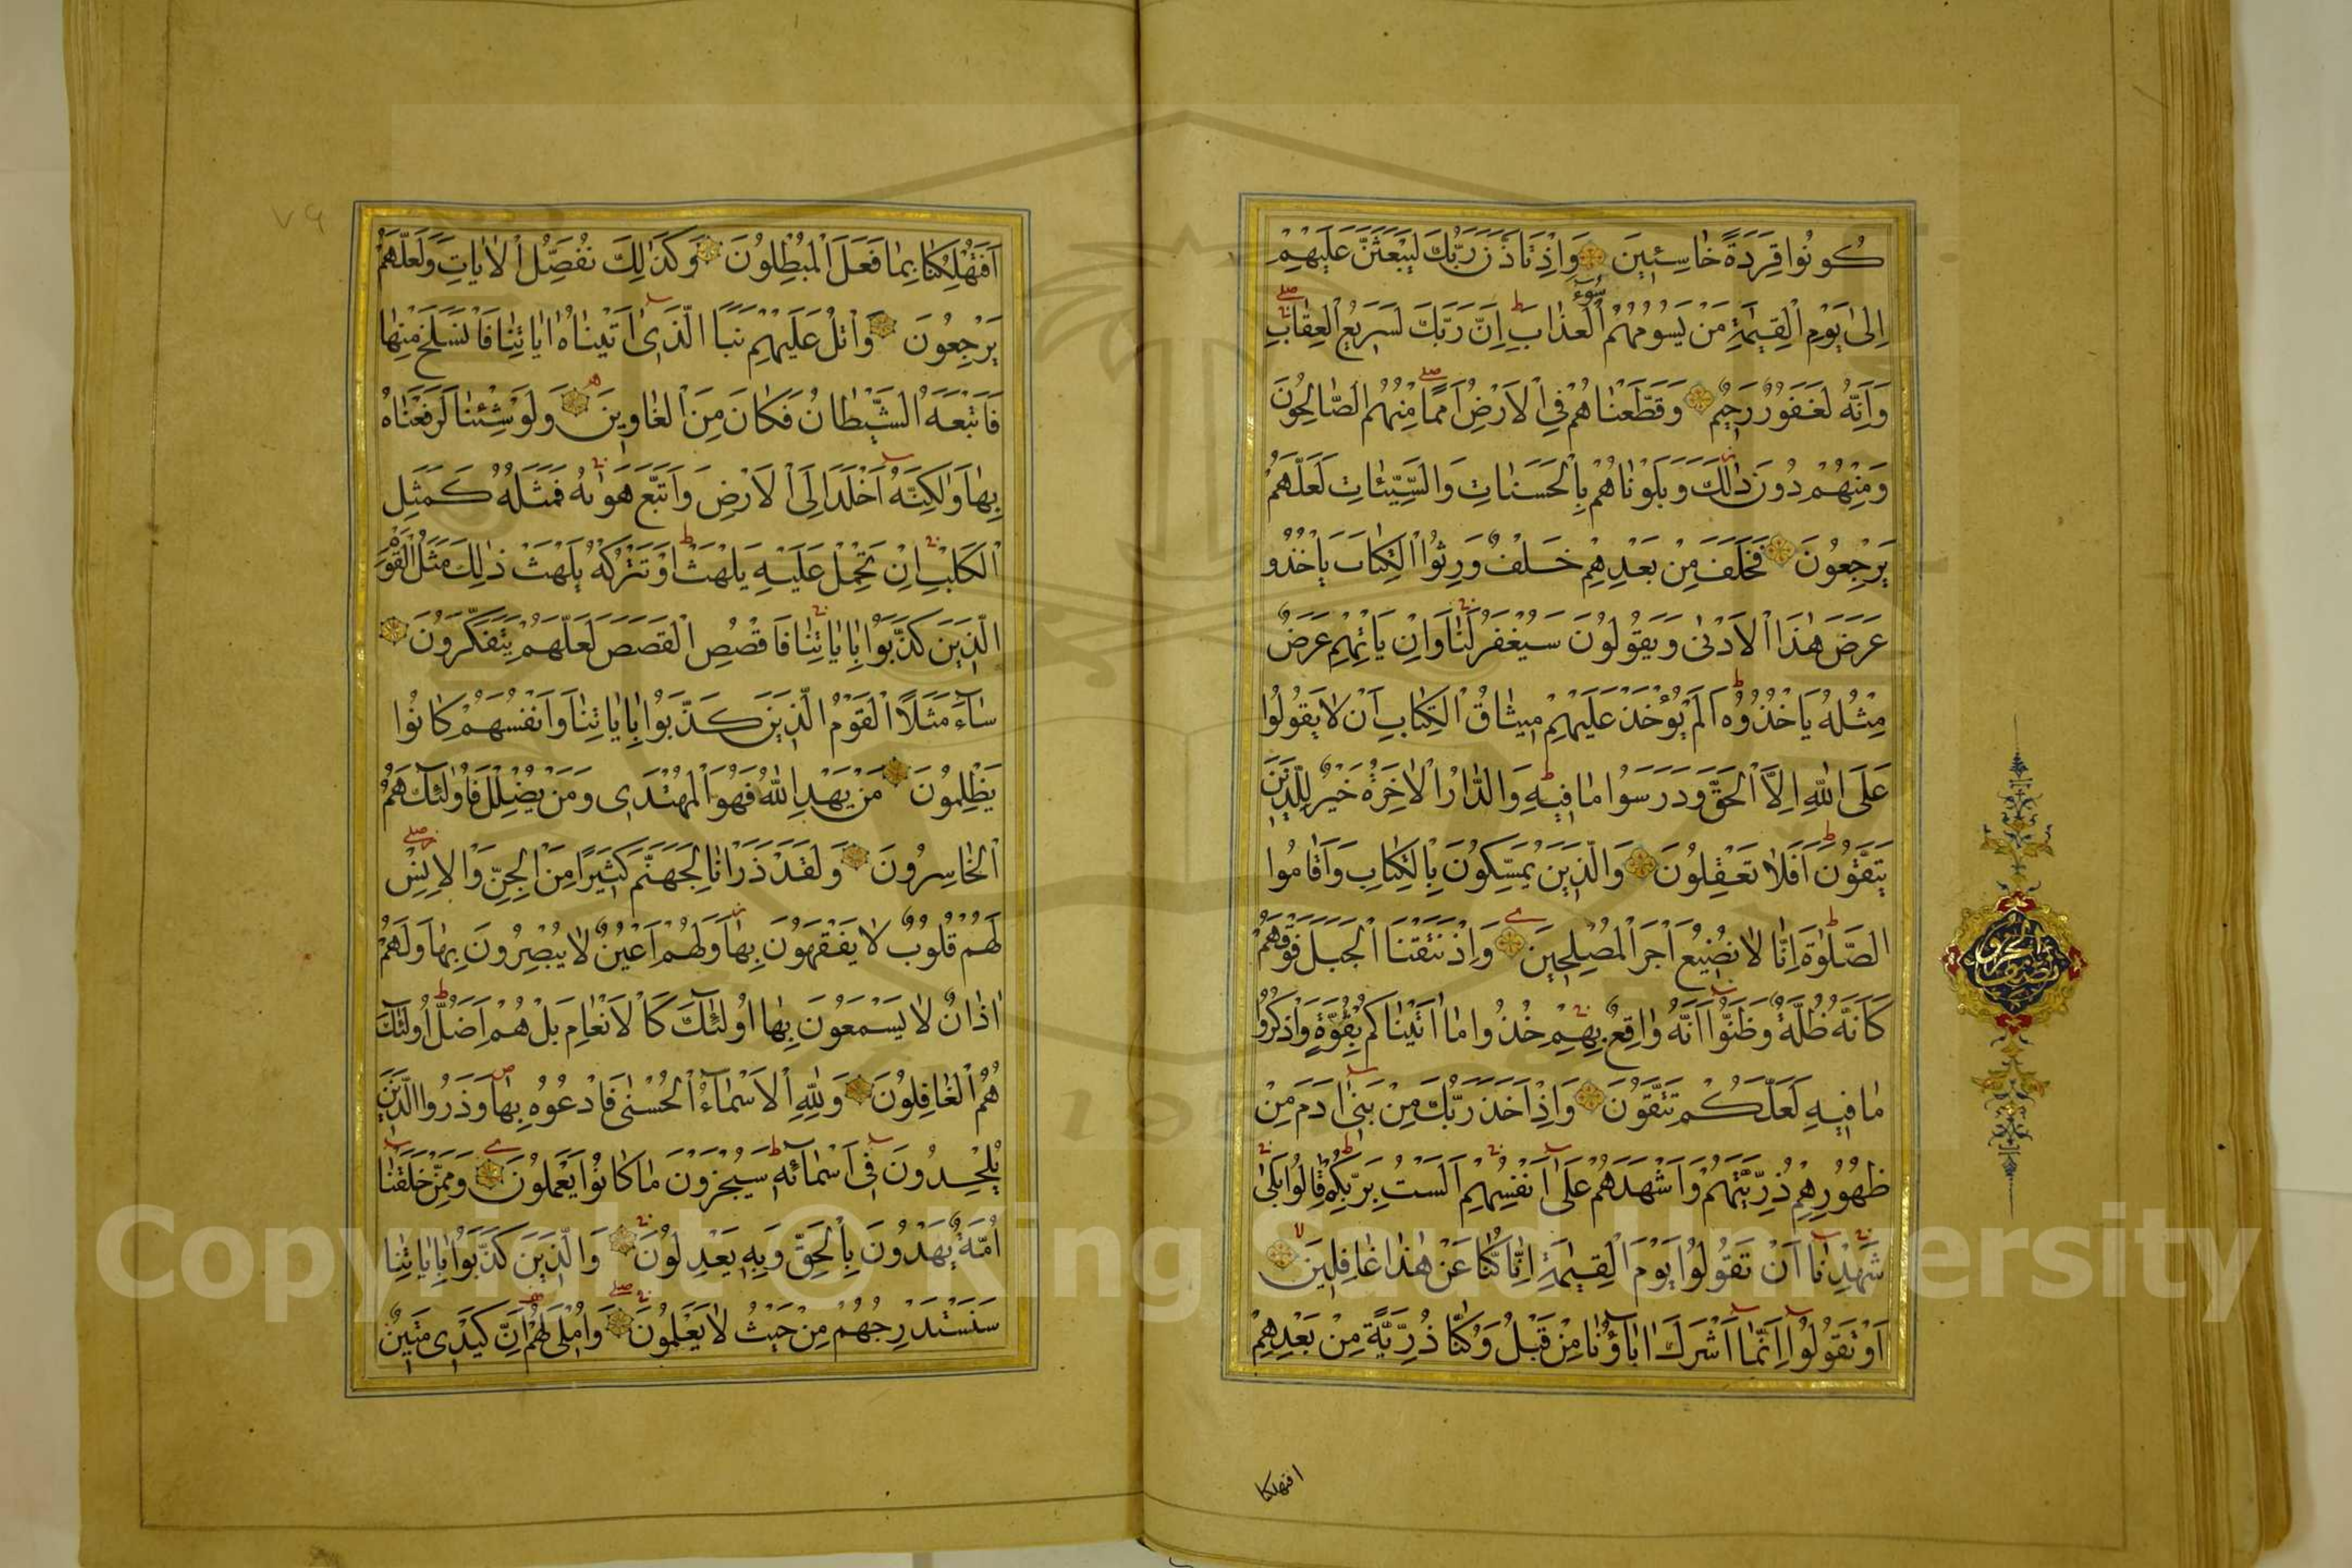 كُونُوا قِرَدَةً خَاسِئِينَ وَإِذْ تَأَذَّنَ رَبُّكَ لَيَبْعَثَنَّ عَلَيْهِمْ
إِلَىٰ يَوْمِ الْقِيٰمَةِ مَنْ يَسُومُهُمْ سُوءَ الْعَذَابَِ إِنَّ رَبَّكَ لَسَرِيعُ الْعِقَابِ
وَإِنَّهُ لَغَفُورٌ رَحِيمٌ وَقَطَّعْنَاهُمْ فِي الْأَرْضِ أُمَمًا مِنْهُمُ الصَّالِحُونَ
وَمِنْهُمْ دُونَ ذٰلِكَ وَبَلَوْنَاهُمْ بِالْحَسَنَاتِ وَالسَّيِّئَاتِ لَعَلَّهُمْ
يَرْجِعُونَ فَخَلَفَ مِنْ بَعْدِهِمْ خَلْفٌ وَرِثُوا الْكِتَابَ يَأْخُذُو
عَرَضَ هٰذَا الْأَدْنَىٰ وَيَقُولُونَ سَيُغْفَرُ لَنَا وَإِنْ يَأْتِهِمْ عَرَضٌ
مِثْلُهُ يَأْخُذُوهُ أَلَمْ يُؤْخَذْ عَلَيْهِمْ مِيثَاقُ الْكِتَابِ أَنْ لَا يَقُولُوا
عَلَى اللّٰهِ إِلَّا الْحَقَّ وَدَرَسُوا مَا فِيهِ وَالدَّارُ الْآخِرَةُ خَيْرٌ لِلَّذِينَ
يَتَّقُونَ أَفَلَا تَعْقِلُونَ وَالَّذِينَ يُمَسِّكُونَ بِالْكِتَابِ وَأَقَامُوا
الصَّلٰوةَ إِنَّا لَا نُضِيعُ أَجْرَ الْمُصْلِحِينَ وَإِذْ نَتَقْنَا الْجَبَلَ فَوْقَهُمْ
كَأَنَّهُ ظُلَّةٌ وَظَنُّوا أَنَّهُ وَاقِعٌ بِهِمْ خُذُوا مَا آتَيْنَاكُمْ بِقُوَّةٍ وَاذْكُرُوا
مَا فِيهِ لَعَلَّكُمْ تَتَّقُونَ وَإِذْ أَخَذَ رَبُّكَ مِنْ بَنِي آدَمَ مِنْ
ظُهُورِهِمْ ذُرِّيَّتَهُمْ وَأَشْهَدَهُمْ عَلَىٰ أَنْفُسِهِمْ أَلَسْتُ بِرَبِّكُمْ قَالُوا بَلَىٰ
شَهِدْنَا أَنْ تَقُولُوا يَوْمَ الْقِيٰمَةِ إِنَّا كُنَّا عَنْ هٰذَا غَافِلِينَ
أَوْ تَقُولُوا إِنَّمَا أَشْرَكَ آبَاؤُنَا مِنْ قَبْلُ وَكُنَّا ذُرِّيَّةً مِنْ بَعْدِهِمْ
افتهلكنا
٧٩
أَفَتُهْلِكُنَا بِمَا فَعَلَ الْمُبْطِلُونَ وَكَذٰلِكَ نُفَصِّلُ الْآيَاتِ وَلَعَلَّهُمْ
يَرْجِعُونَ وَاتْلُ عَلَيْهِمْ نَبَأَ الَّذِي آتَيْنَاهُ آيَاتِنَا فَانْسَلَخَ مِنْهَا
فَأَتْبَعَهُ الشَّيْطَانُ فَكَانَ مِنَ الْغَاوِينَ وَلَوْ شِئْنَا لَرَفَعْنَاهُ
بِهَا وَلٰكِنَّهُ أَخْلَدَ إِلَى الْأَرْضِ وَاتَّبَعَ هَوٰىهُ فَمَثَلُهُ كَمَثَلِ
الْكَلْبِ إِنْ تَحْمِلْ عَلَيْهِ يَلْهَثْ أَوْ تَتْرُكْهُ يَلْهَثْ ذٰلِكَ مَثَلُ الْقَوْمِ
الَّذِينَ كَذَّبُوا بِآيَاتِنَا فَاقْصُصِ الْقَصَصَ لَعَلَّهُمْ يَتَفَكَّرُونَ
سَاءَ مَثَلًا الْقَوْمُ الَّذِينَ كَذَّبُوا بِآيَاتِنَا وَأَنْفُسَهُمْ كَانُوا
يَظْلِمُونَ مَنْ يَهْدِ اللّٰهُ فَهُوَ الْمُهْتَدِي وَمَنْ يُضْلِلْ فَأُولٰئِكَ هُمُ
الْخَاسِرُونَ وَلَقَدْ ذَرَأْنَا لِجَهَنَّمَ كَثِيرًا مِنَ الْجِنِّ وَالْإِنْسِ
لَهُمْ قُلُوبٌ لَا يَفْقَهُونَ بِهَا وَلَهُمْ أَعْيُنٌ لَا يُبْصِرُونَ بِهَا وَلَهُمْ
آذَانٌ لَا يَسْمَعُونَ بِهَا أُولٰئِكَ كَالْأَنْعَامِ بَلْ هُمْ أَضَلُّ أُولٰئِكَ
هُمُ الْغَافِلُونَ وَلِلّٰهِ الْأَسْمَاءُ الْحُسْنَىٰ فَادْعُوهُ بِهَا وَذَرُوا الَّذِينَ
يُلْحِدُونَ فِي أَسْمَائِهِ سَيُجْزَوْنَ مَا كَانُوا يَعْمَلُونَ وَمِمَّنْ خَلَقْنَا
أُمَّةٌ يَهْدُونَ بِالْحَقِّ وَبِهِ يَعْدِلُونَ وَالَّذِينَ كَذَّبُوا بِآيَاتِنَا
سَنَسْتَدْرِجُهُمْ مِنْ حَيْثُ لَا يَعْلَمُونَ وَأُمْلِي لَهُمْ إِنَّ كَيْدِي مَتِينٌ
Copyright © King Saud University
195